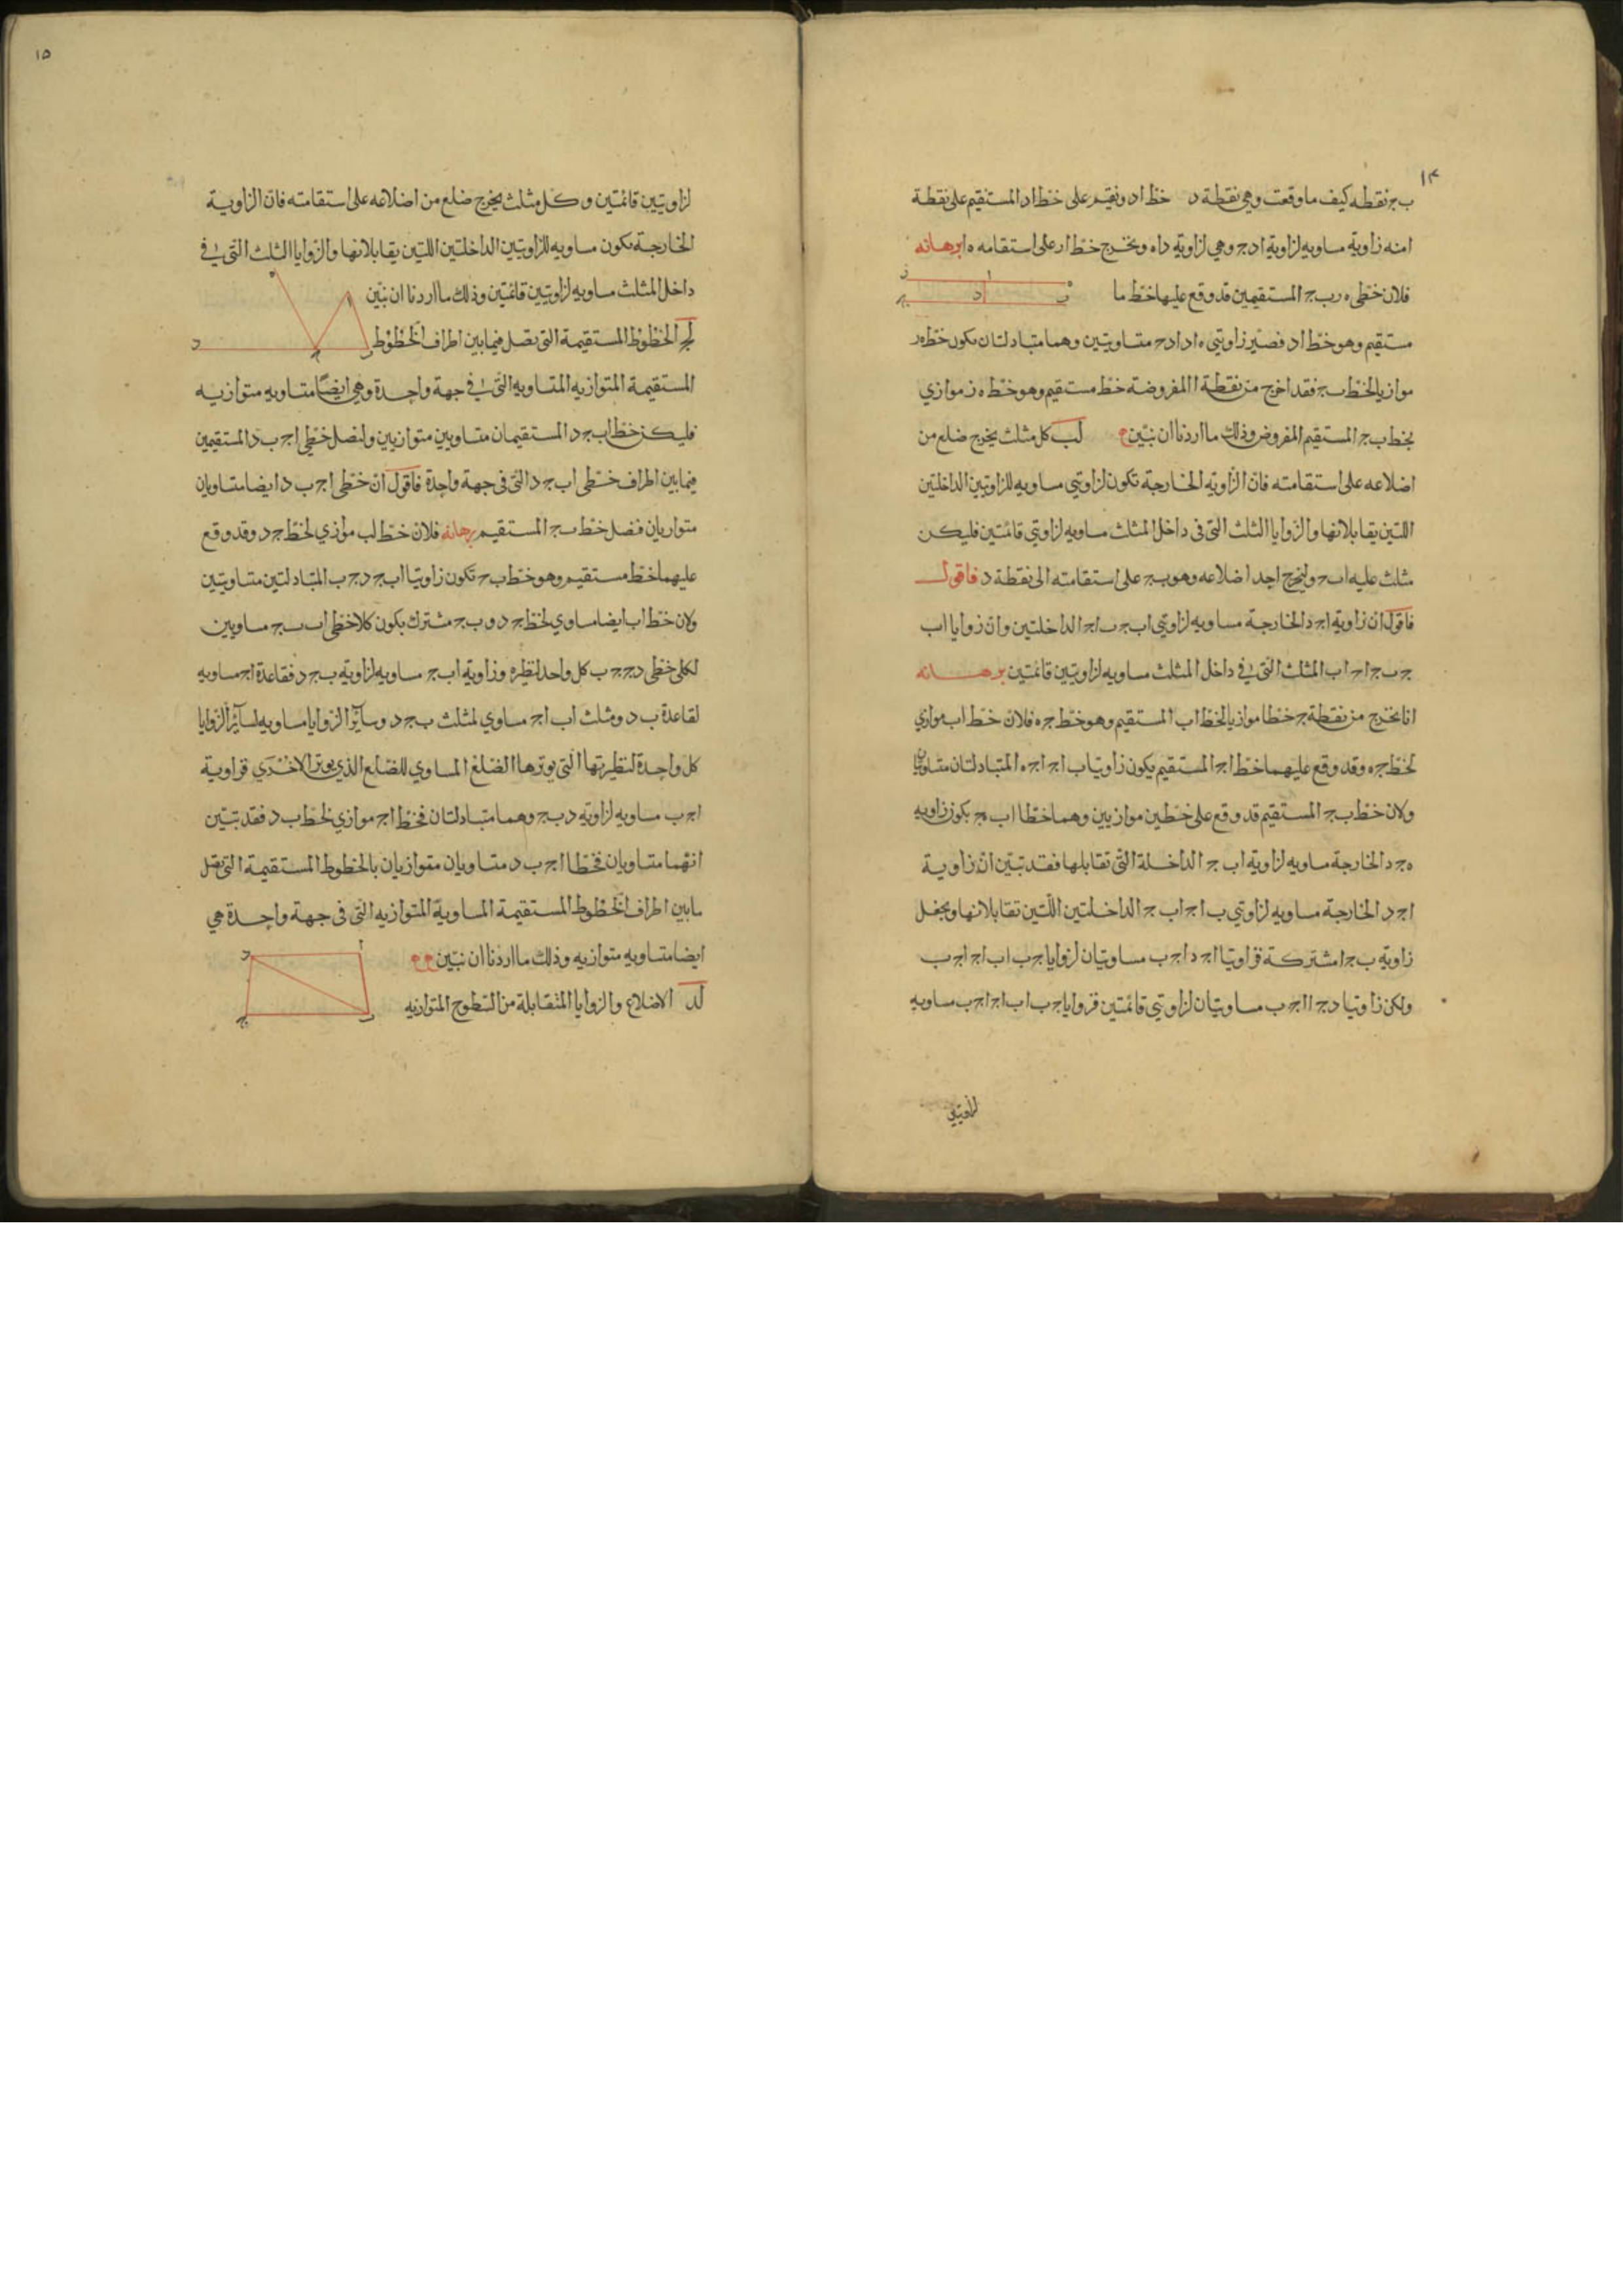 ١٤
ب ج نقطه كيف ما وقعت وهي نقطة د خط ا د ونقيم على خط ا د المستقيم على نقطة
ا منه زاوية مساويه لزاوية ا د ج وهي لزاوية د ا ه ونخرج خط ا ر على استقامه ه ا برهانه
فلان خطى ه ر ب ج المستقيمين قد وقع عليها خط ما
مستقيم وهو خط ا د فصير زاويتي ه ا د ا د ح متساويتين وهما متبادلتان يكون خط ه ر
موازيا لخط ب ج فقد اخرج من نقطة ا المفروضه خط مستقيم وهو خط ه ز موازي
لخط ب ج المستقيم المفروض وذلك ما اردنا ان نبين لب كل مثلث يخرج ضلع من
اضلاعه على استقامته فان الزاويه الخارجة تكون لزاويتي مساويه للزاويتين الداخلتين
اللتين يقابلانها والزوايا الثلث التى فى داخل المثلث مساويه لزاويتي قائمتين فليكن
مثلث عليه ا ب ح ولنخرج احد اضلاعه وهو ب ج على استقامته الى نقطة د فاقول
فاقول ان زاوية ا ج د الخارجة مساويه لزاويتي ا ب ج ب ا ج الداخلتين وان زوايا ا ب
ج ب ج ا ح ا ب المثلث التى فى داخل المثلث مساويه لزاويتين قائمتين برهانه
انا نخرج من نقطة ج خطا موازيا لخط ا ب المستقيم وهو خط ج ه فلان خط ا ب موازي
لخط ج ه وقد وقع عليهما خط ا ج المستقيم يكون زاويتا ب ا ج ا ج ه المتبادلتان متساويتان
ولان خط ب ج المستقيم قد وقع على خطين موازيين وهما خطا ا ب ه ج يكون زاويه
ه ج د الخارجة مساويه لزاوية ا ب ج الداخلة التى تقابلها فقد تبين ان زاوية
ا ج د الخارجة مساويه لزاويتي ب ا ج ا ب ج الداخلتين اللتين تقابلانها ونجعل
زاوية ب ج ا مشتركة فزاويتا ا ج د ا ج ب مساويتان لزوايا ج ب ا ب ا ج ا ج ب
ولكن زاويتا د ج ا ا ج ب مساويتان لزاويتي قائمتين فزوايا ج ب ا ب ا ج ا ج ب مساويه
لزاويتين
١٥
لزاويتين قائمتين و كل مثلث يخرج ضلع من اضلاعه على استقامته فان الزاوية
الخارجة يكون مساويه للزاويتين الداخلتين اللتين يقابلانها والزوايا الثلث التى فى
داخل المثلث مساويه لزاويتين قائمتين وذلك ما اردنا ان نبين
لج الخطوط المستقيمة التى تصل فيما بين اطراف الخطوط
المستقيمة المتوازيه المتساويه التى فى جهة واحدة وهي ايضا متساويه متوازيه
فليكن خط ا ب ج د المستقيمان متساويين متوازيين ولنصل خطى ا ج ب د المستقيمين
فيما بين اطراف خطى ا ب ج د التى فى جهة واحدة فاقول ان خطى ا ج ب د ايضا متساويان
متوازيان فنصل خط ب ج المستقيم برهانه فلان خط ا ب موازي لخط ج د وقد وقع
عليهما خط مستقيم وهو خط ب ح تكون زاويتا ا ب ج د ج ب المتبادلتين متساويتين
ولان خط ا ب ايضا مساوي لخط ج د و ب ج مشترك يكون كلا خطى ا ب ب ج مساويين
لكلى خطى د ج ج ب كل واحد لنظيره وزاوية ا ب ج مساويه لزاوية ب ج د فقاعدة ا ج مساويه
لقاعدة ب د ومثلث ا ب ا ج مساوي لمثلث ب ج د وسائر الزوايا مساويه لسائر الزوايا
كل واحدة لنظيرتها التى يوترها الضلع المساوي للضلع الذي يوتر الاخرى فزاوية
ا ج ب مساويه لزاويه د ب ج وهما متبادلتان فخط ا ج موازي لخط ب د فقد تبين
انهما متساويان فخطا ا ج ب د متساويان متوازيان بالخطوط المستقيمة التى تصل
مابين اطراف الخطوط المستقيمة المساوية المتوازيه التى فى جهة واحدة هي
ايضا متساويه متوازيه وذلك ما اردنا ان نبين
لد الاضلاع والزوايا المتقابلة من السطوح المتوازيه